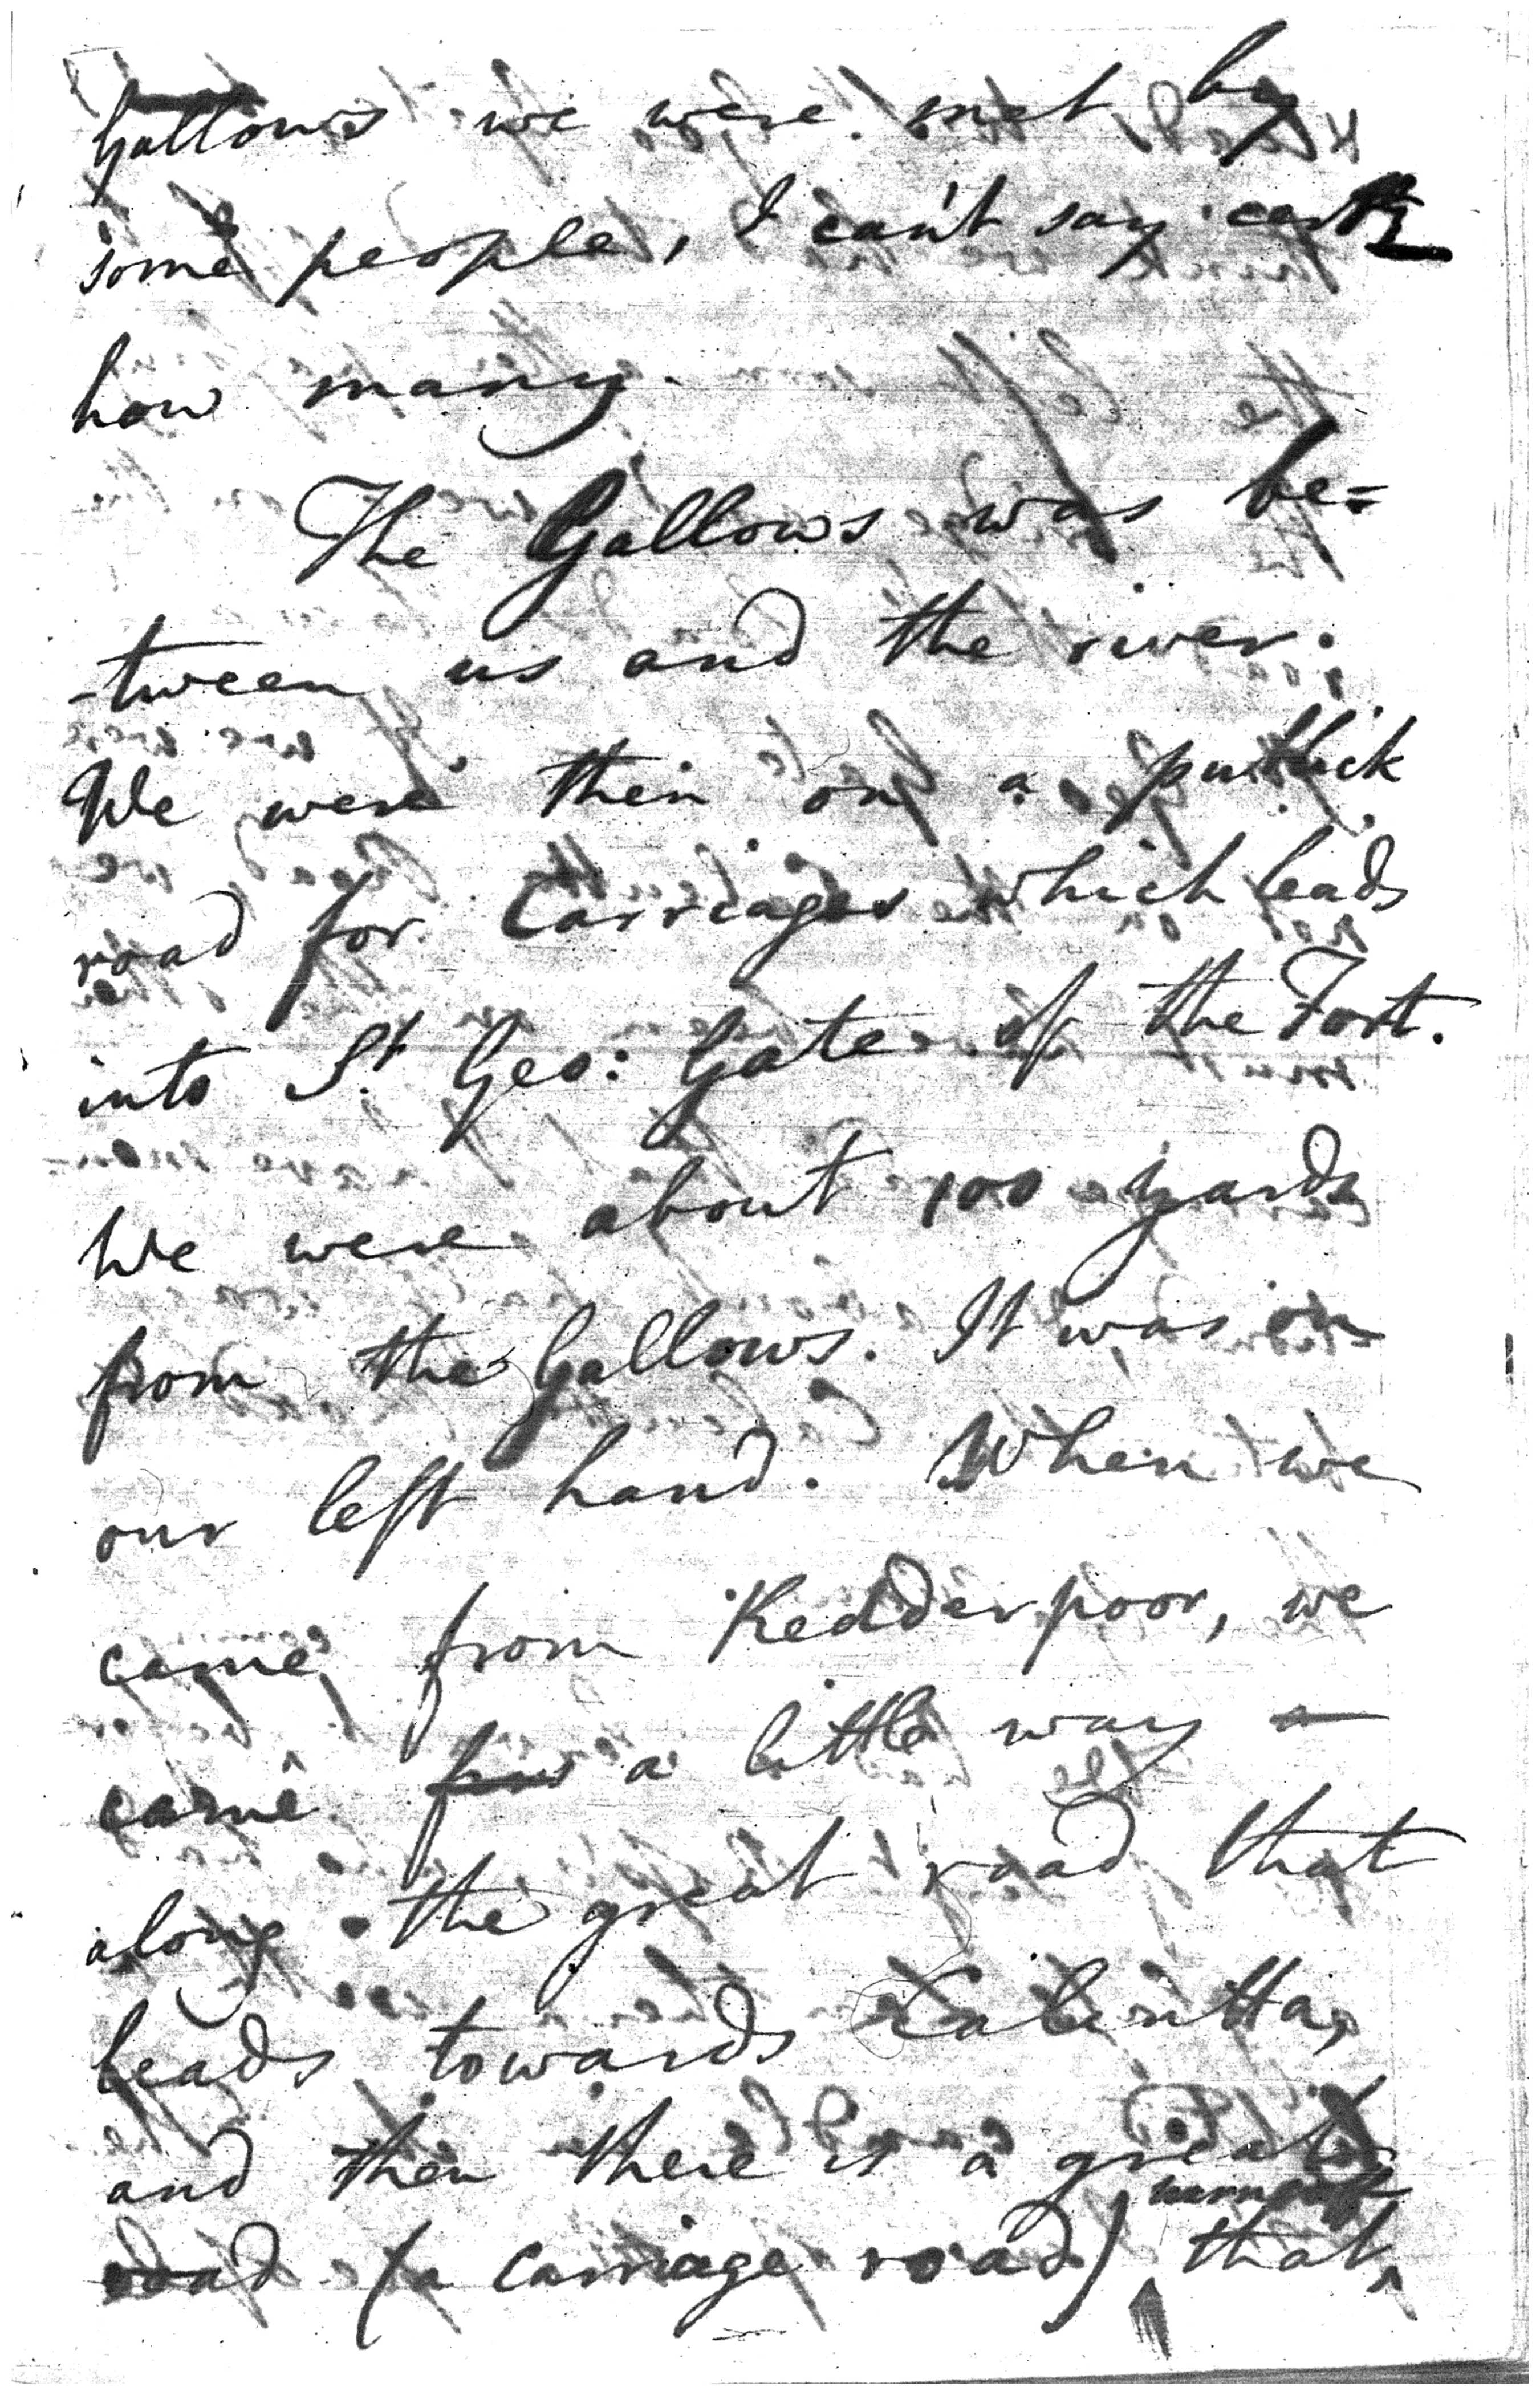 Gallows we were met by
some people, I can't say
how many.
The Gallows was be=
-tween us and the river.
We were then on a publick
road for Carriages which leads
into St Geo: Gate of the Fort.
We were about 100 yards
from the Gallows. It was on
our left hand. When we
came from Kedderpoor, we
came a little way
along the great road that
leads towards Calcutta,
and then there is a great
road (a carriage road) that